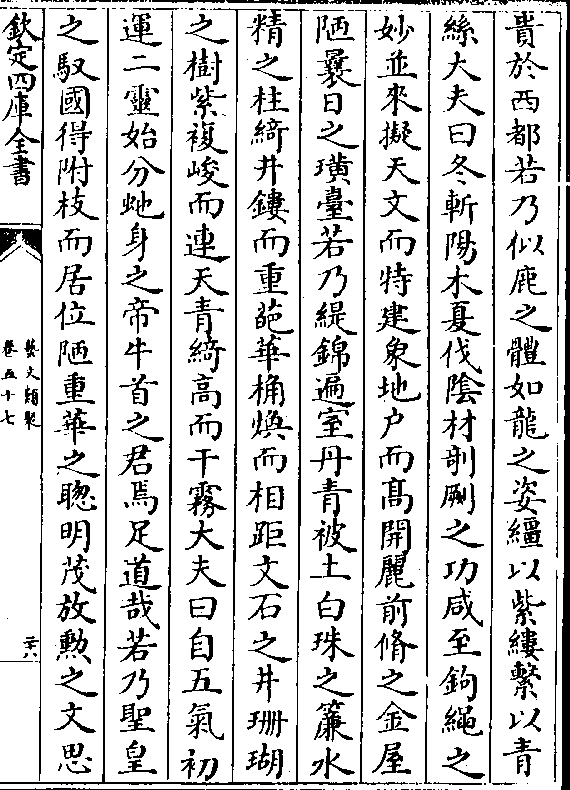 貴於西都若乃似鹿之體如龍之姿繮以紫縷繫以青
絲大夫曰冬斬陽木夏伐陰材剞劂之功咸至鉤繩之
妙並來擬天文而特建象地户而髙開麗前脩之金屋
陋曩日之璜臺若乃緹錦遍室丹青被土白珠之簾水
精之柱綺井鏤而重葩華桷煥而相距文石之井珊瑚
之樹紫複峻而連天青綺高而干霧大夫曰自五氣初
運二靈始分虵身之帝牛首之君焉足道哉若乃聖皇
之馭國得附枝而居位陋重華之聰明茂放勲之文思
欽定四庫全書
藝文類聚
卷五十七
二十六